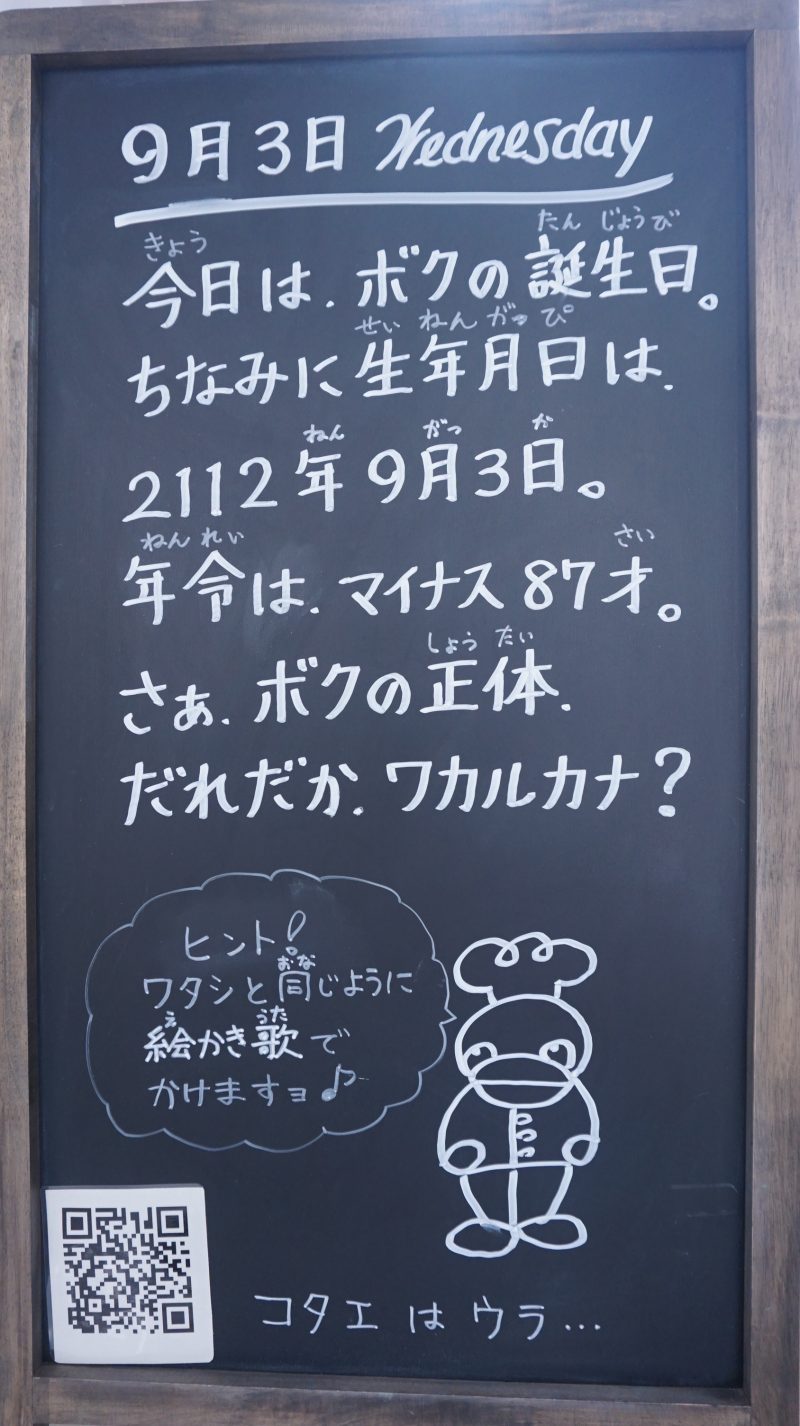 9月3日 Wednesday
きょう たんじょうび
今日は、ボクの誕生日。
せいねんがっぴ
ちなみに生年月日は、
ねん がつ か
2112年9月3日。
ねんれい さい
年令は、マイナス87才。
しょうたい
さぁ、ボクの正体、
だれだか、ワカルカナ?
ヒント!
おな
ワタシと同じように
え うた
絵かき歌で
かけますヨ♪
コタエはウラ...